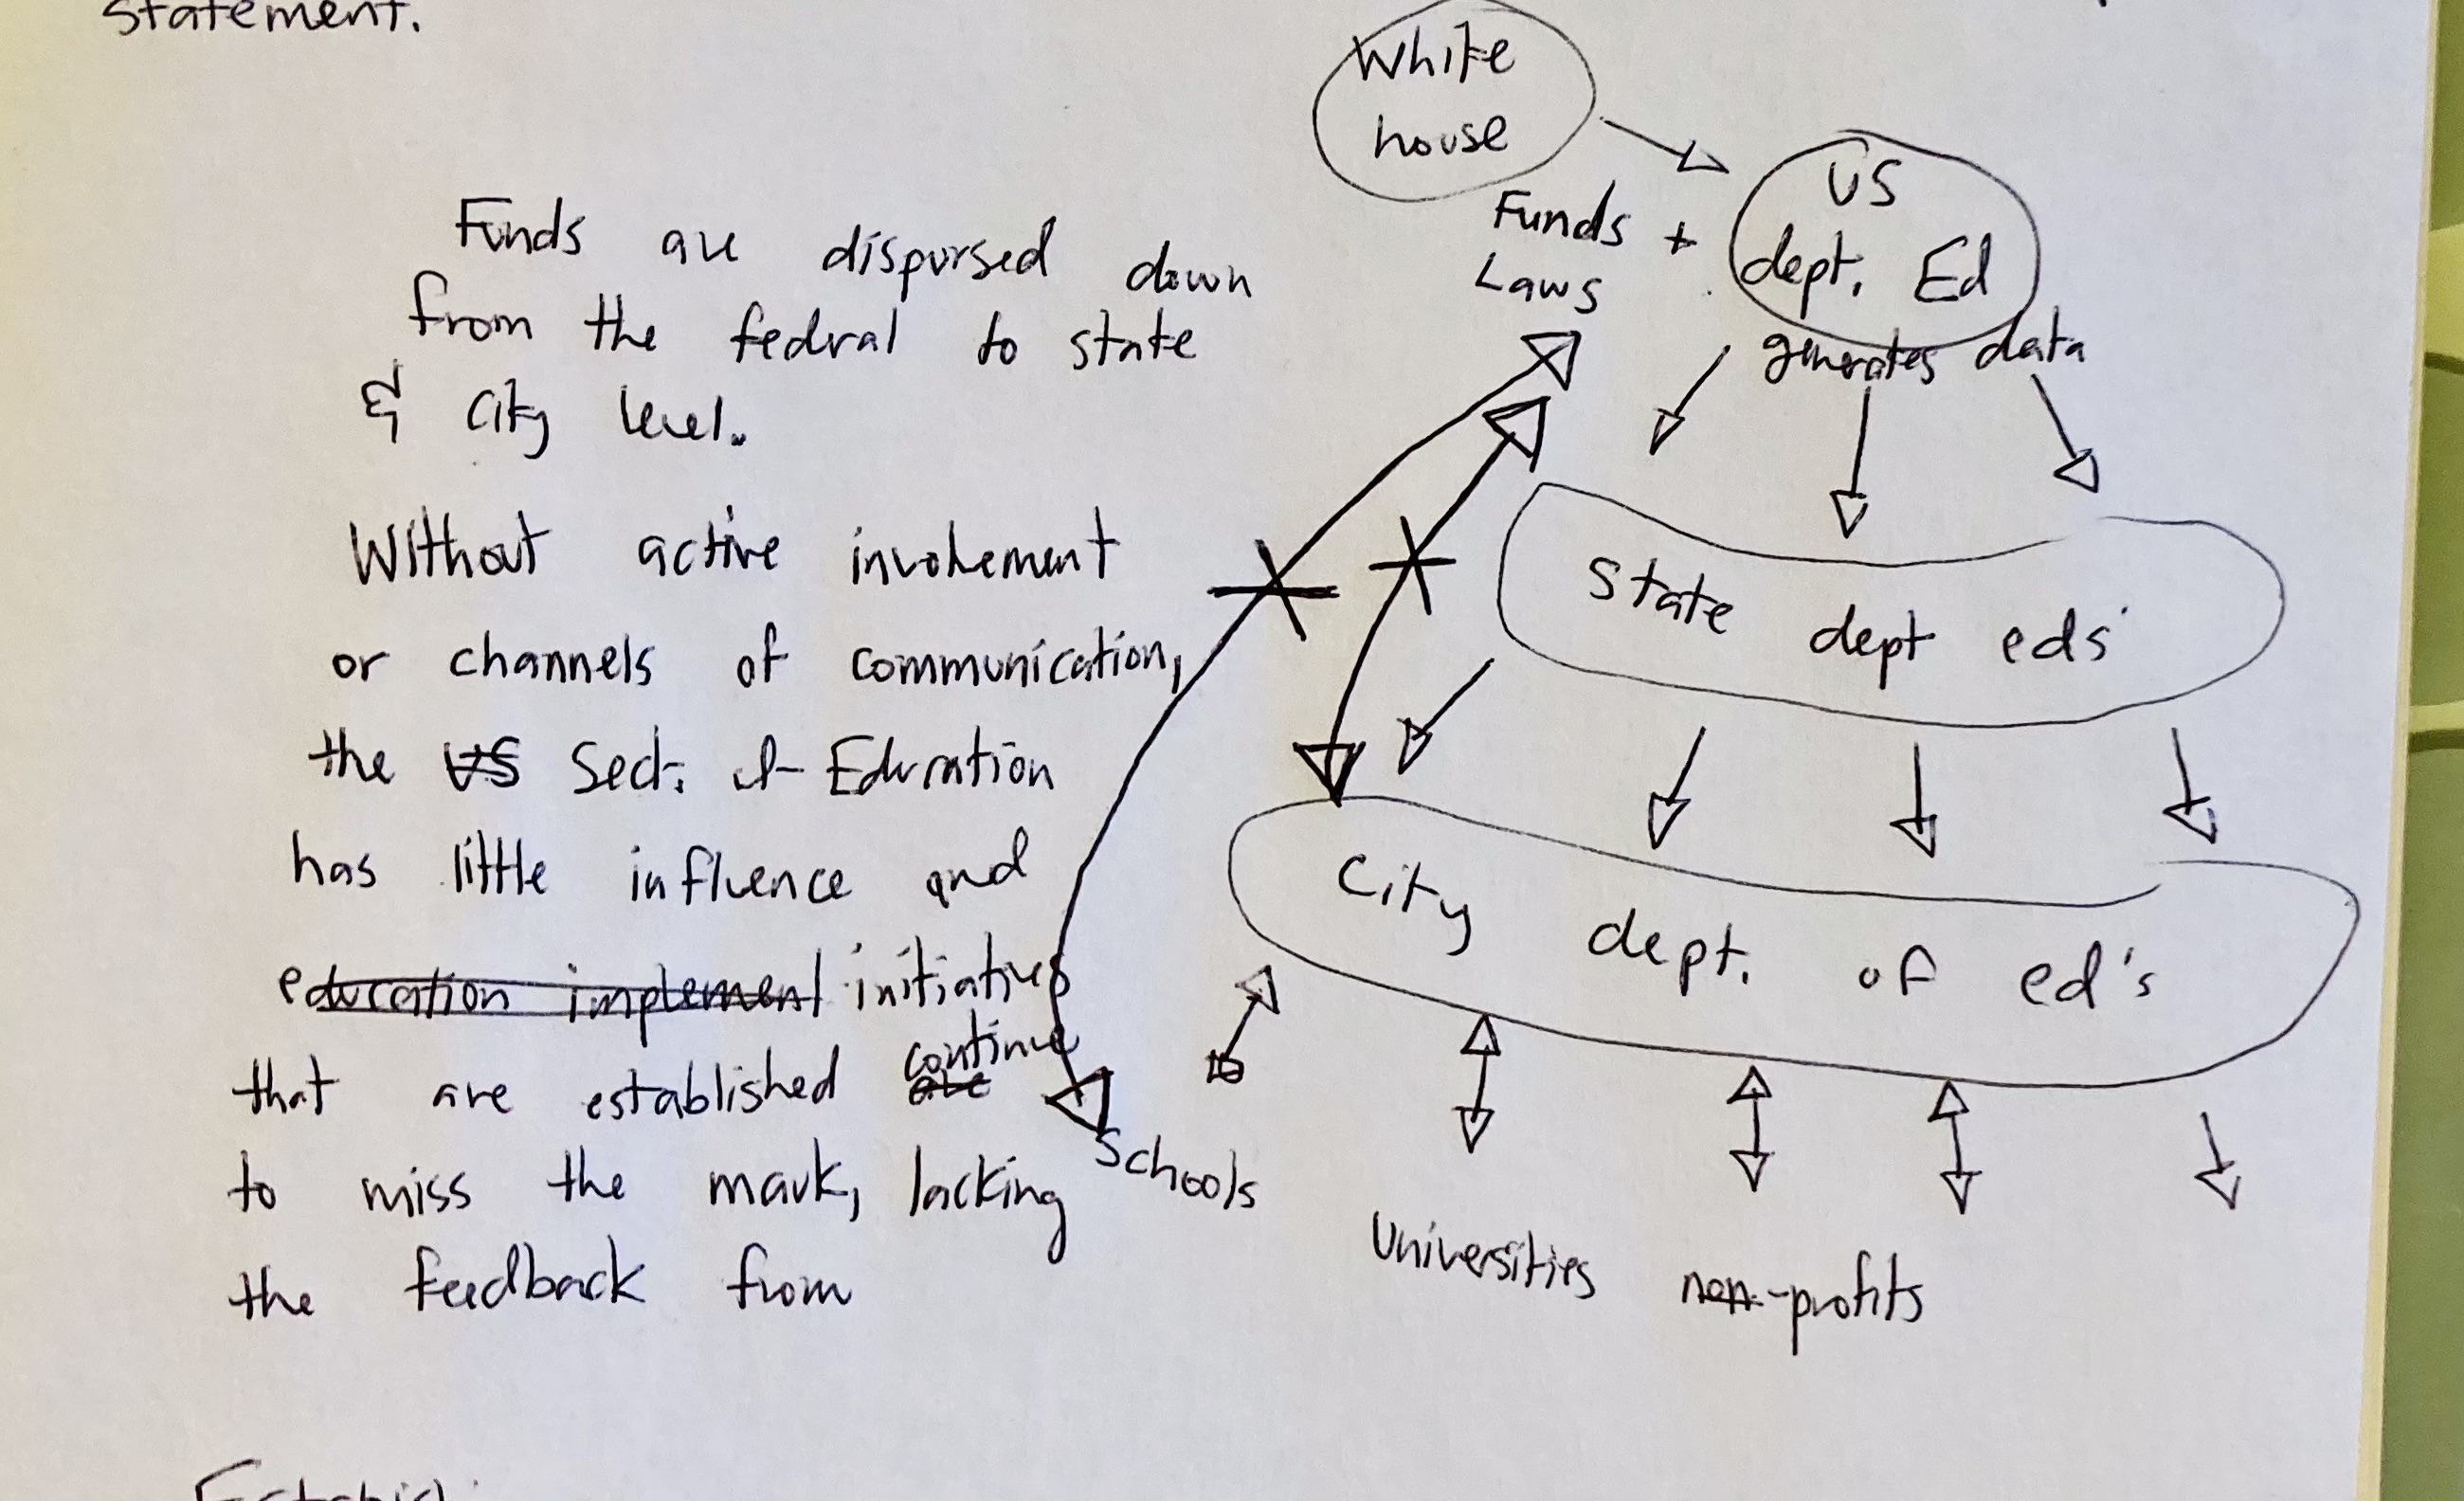 statement.
Funds are dispursed down
from the fedral to state
& city level.
Without active involvement
or channels of communication,
the US Sect. of Education
has little influence and
education implement initiatives
that are established are continue
to miss the mark, lacking
the feedback from
White
house
US
dept. Ed
Funds +
Laws
generates data
State dept eds'
City dept. of ed's
Schools
Universities
non-profits